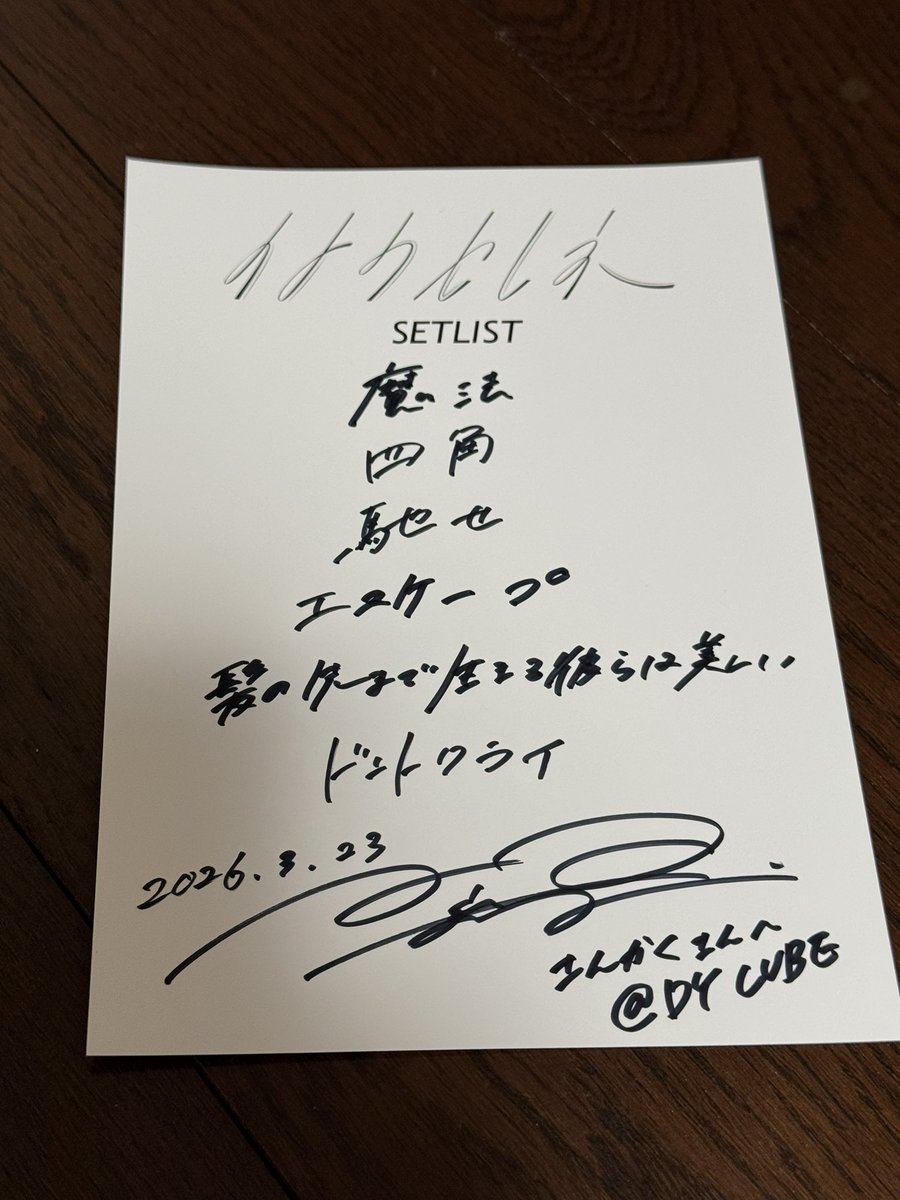 SETLIST
魔法
四角
馳せ
エスケープ
髪の先まで生きる彼らは美しい
ドントクライ
2026.3.23
さんかくさんへ
@DY CUBE